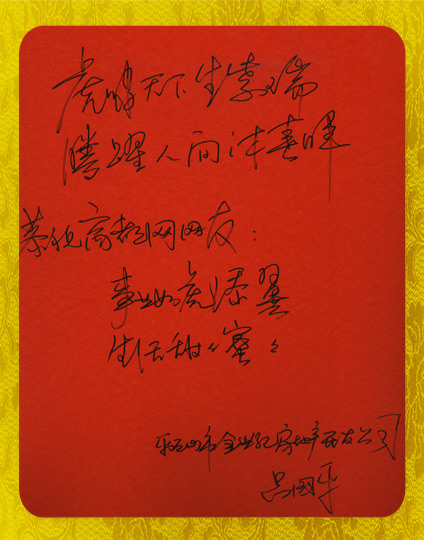 虎啸天下生紫瑞
腾跃人间沐春晖
恭祝高都网网友：
事业如虎添翼
生活甜甜蜜蜜
市金世纪房地产开发公司
吕国平